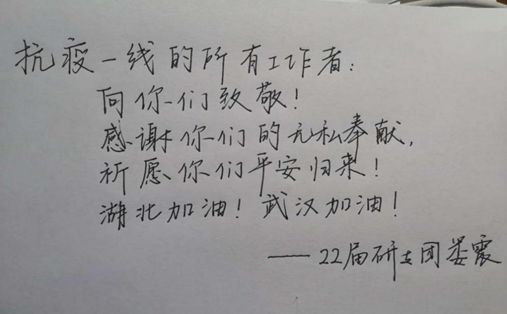 抗疫一线的所有工作者：
向你们致敬！
感谢你们的无私奉献，
祈愿你们平安归来！
湖北加油！武汉加油！
——22届研支团娄震